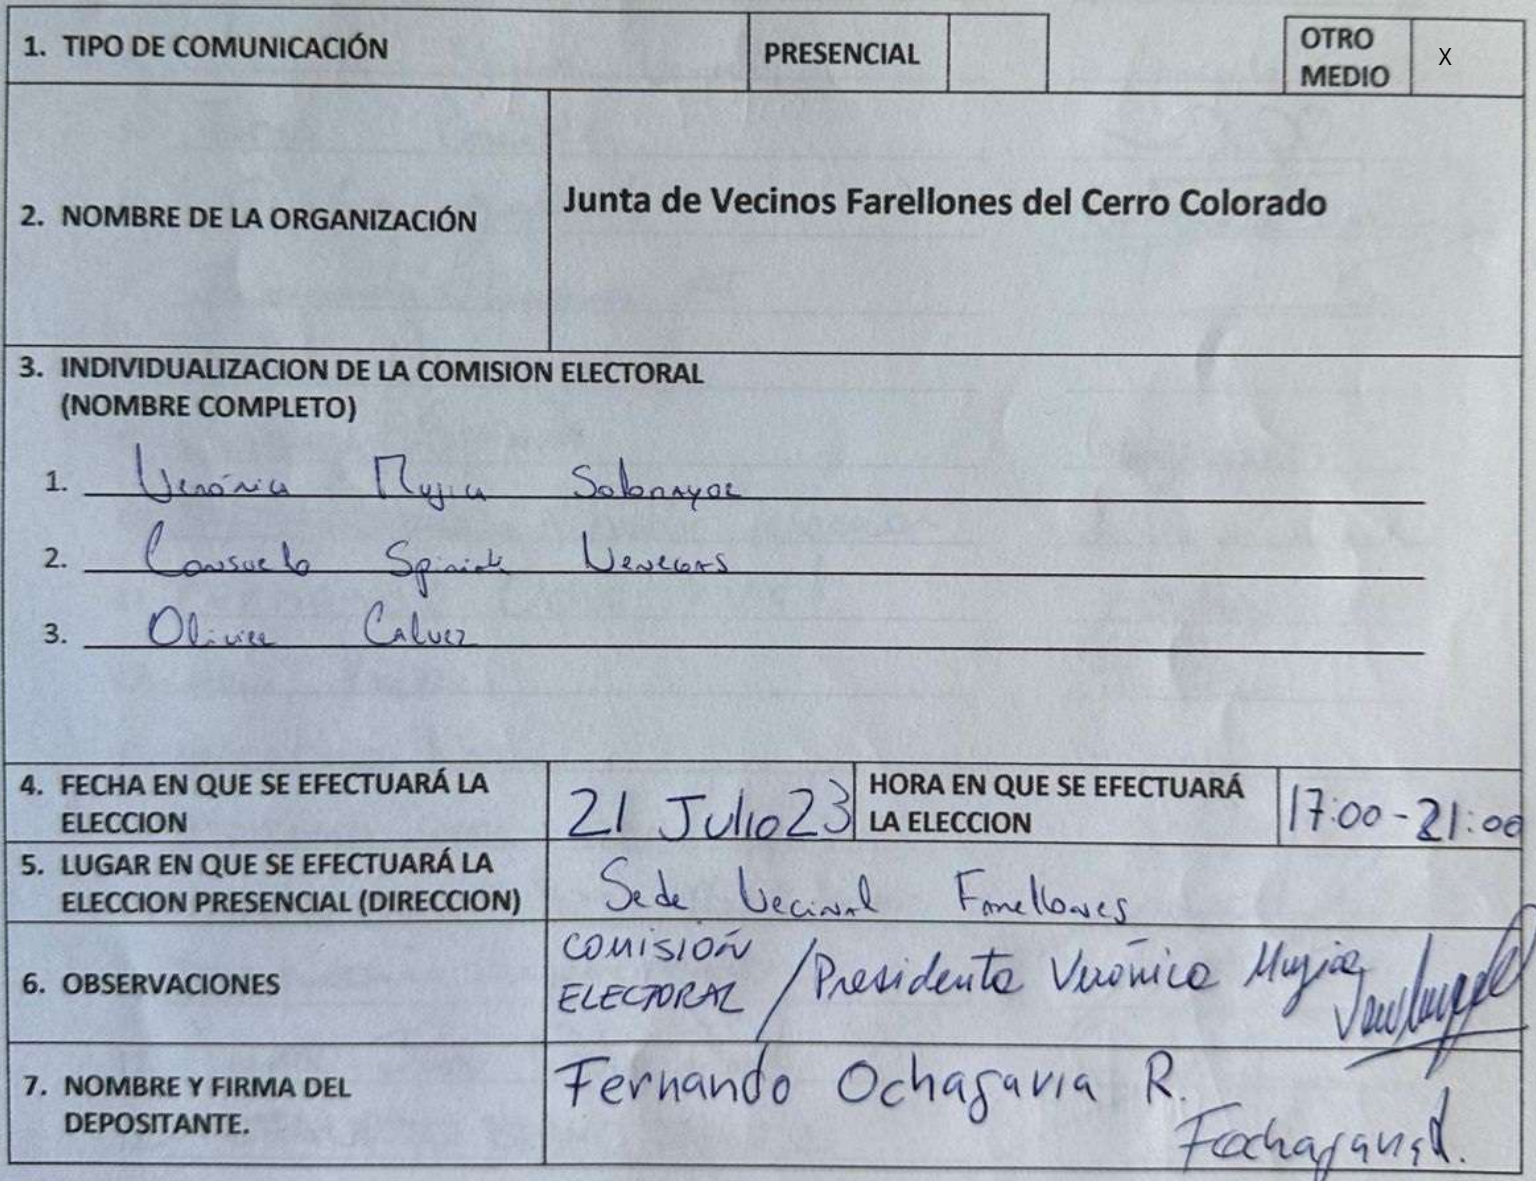 1. TIPO DE COMUNICACIÓN PRESENCIAL OTRO MEDIO X
2. NOMBRE DE LA ORGANIZACIÓN Junta de Vecinos Farellones del Cerro Colorado
3. INDIVIDUALIZACION DE LA COMISION ELECTORAL
(NOMBRE COMPLETO)
1. Verónica Mujica Sotomayor
2. Consuelo VeneGas
3. Olivier Calvez
4. FECHA EN QUE SE EFECTUARÁ LA
ELECCION
21 Julio 23
HORA EN QUE SE EFECTUARÁ
LA ELECCION
17:00-21:00
5. LUGAR EN QUE SE EFECTUARÁ LA
ELECCION PRESENCIAL (DIRECCION)
Sede Vecinal Farellones
6. OBSERVACIONES
COMISIÓN
ELECTORAL / Presidenta Verónica Mujica
7. NOMBRE Y FIRMA DEL
DEPOSITANTE.
Fernando Ochagavia R.